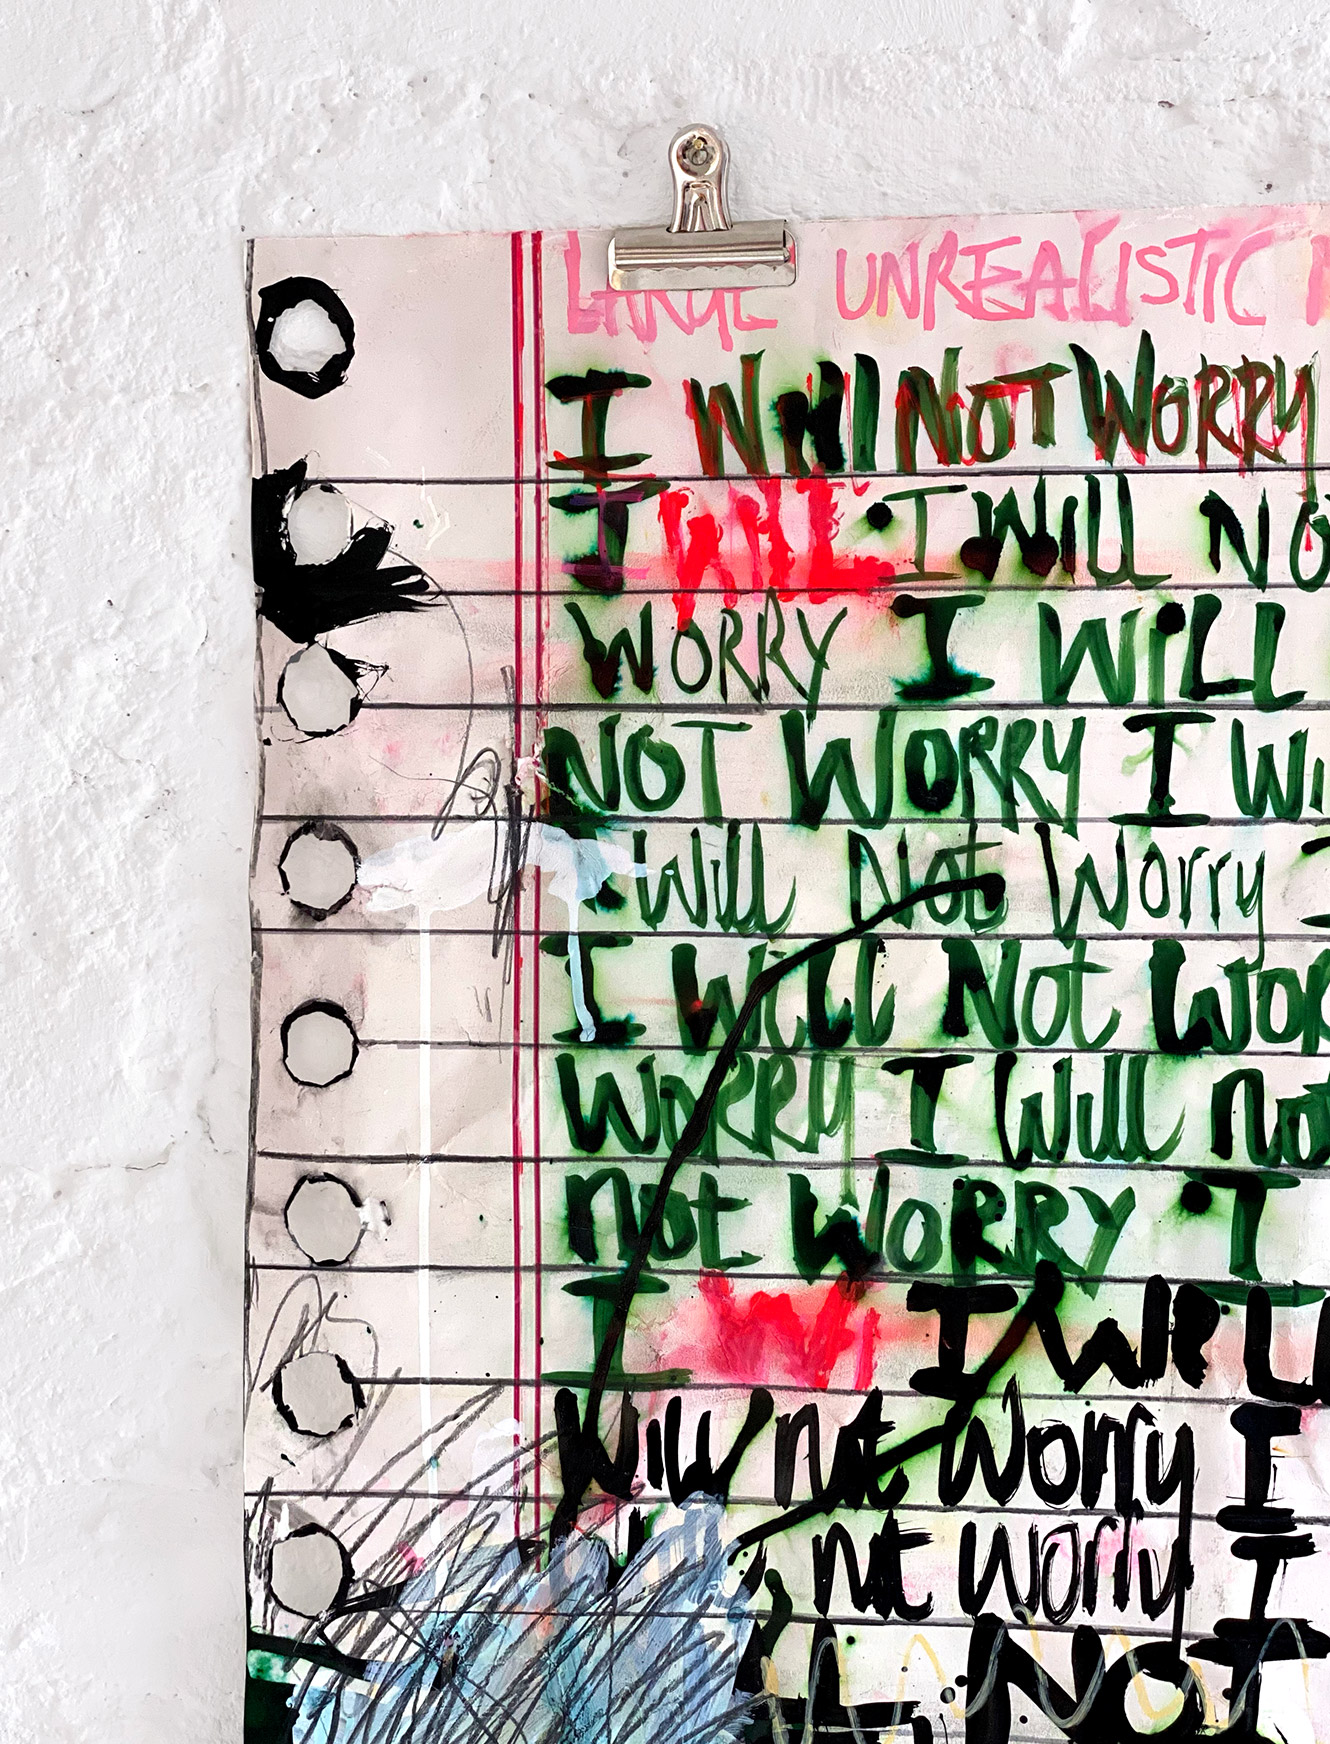 LARGE UNREALISTIC
I Will NOT WORRY
I WILL I WILL NO
WORRY I WILL
NOT WORRY I Wi
I Will Not Worry I
I WILL Not WOR
WORRY I Will not
not WORRY I
I I WILL
Will not Worry I
not worry I
NOT